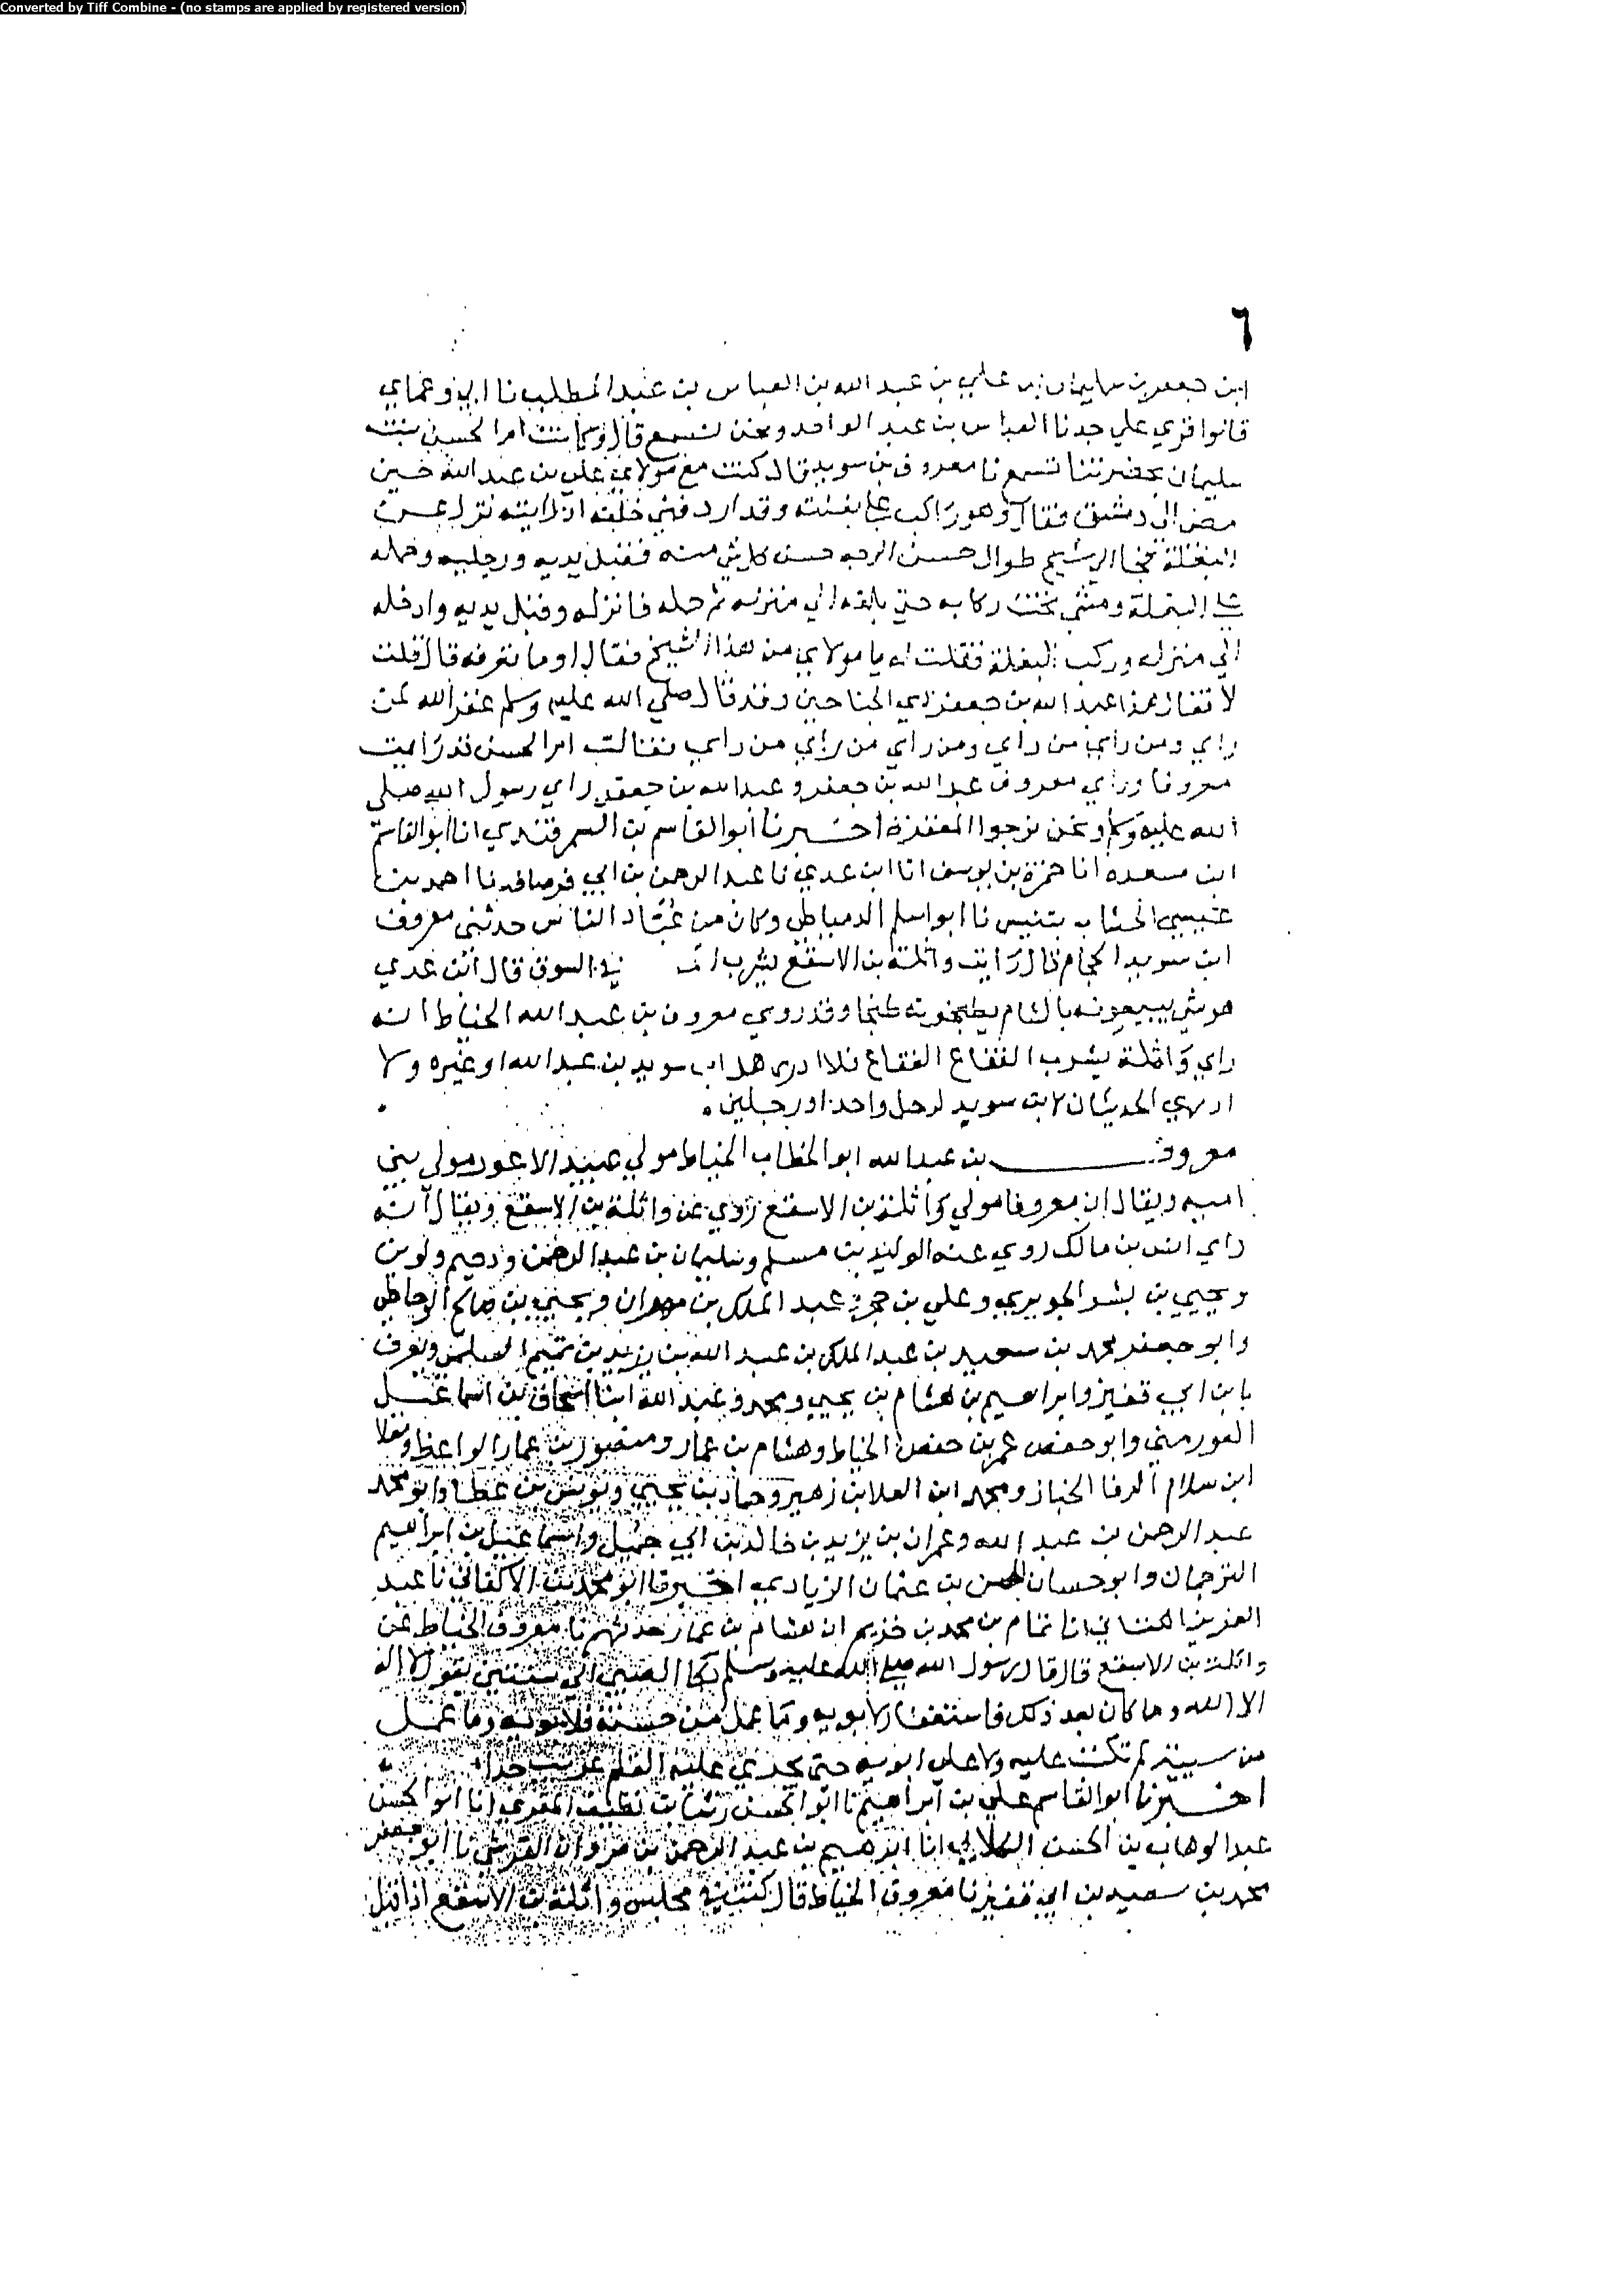 Converted by Tiff Combine - (no stamps are applied by registered version)
٦
ابن جعفر بن سليمان بن علي بن عبد الله بن العباس بن عبد المطلب نا ابي وعماي
قالوا قري علي جدنا العباس بن عبد الواحد ونحن نسمع قال وكانت ام الحسن بنت
سليمان بحضرتنا تسمع نا معروف بن سويد قال كنت مع مولاي علي بن عبد الله حين
مضي الي دمشق فقال وهو راكب علي بغلته وقد اردفني خلفه اذ رايته نزل عن
البغلة طوال حسن الوجه حسن كل شي منه فقبل يديه ورجليه وحمله
علي البغلة ومشي تحت ركابه حتي بلغه الي منزله ثم حمله فانزله وقبل يديه وادخله
الي منزله وركب البغلة فقلت له يا مولاي من هذا الشيخ فقال او ما تعرفه قال قلت
لا فقال هذا عبد الله بن جعفر ذي الجناحين وقد قال صلي الله عليه وسلم غفر الله لمن
راي ومن راي من راي ومن راي من راي من راي فقالت ام الحسن قد رايت
معروفا وراي معروف عبد الله بن جعفر وعبد الله بن جعفر راي رسول الله صلي
الله عليه وسلم ونحن نرجوا المغفرة اخبرنا ابو القاسم بن السمرقندي انا ابو القاسم
ابن مسعدة انا حمزة بن يوسف انا ابن عدي نا عبد الرحمن بن ابي قرصافه نا احمد بن
عيسي الخشاب بتنيس نا ابو اسلم الدمياطي وكان من عباد الناس حدثني معروف
ابن سويد الحجام قال رايت واثلة بن الاسقع يشرب في السوق قال ابن عدي
هو شي يبيعونه بالشام يطبخونه طبخا وقد روي معروف بن عبد الله الخياط انه
راي واثلة يشرب الفقاع الفقاع فلا ادري هذا ابن سويد بن عبد الله او غيره ولا
ادري الحديثان لابن سويد لرجل واحد او رجلين
معروف بن عبد الله ابو الخطاب الخياط مولي عبيد الاعور مولي بني
اميه ويقال ان معروفا مولي واثلة بن الاسقع روي عن واثلة بن الاسقع ويقال انه
راي انس بن مالك روي عنه الوليد بن مسلم وسليمان بن عبد الرحمن ودحيم ولوين
ويحيي بن بشر الجويري وعلي بن حجر عبد الملك بن مهران ويحيي بن صالح الوحاظي
وابو جعفر محمد بن سعيد بن عبد الملك بن عبد الله بن يزيد بن تميم السلمي ويعرف
بابن ابي قفيز وابراهيم بن هشام بن يحيي ومحمد وعبد الله ابنا اسحاق بن اسماعيل
وابو حفص عمر بن حفص الخياط وهشام بن عمار ومنصور بن عمار الواعظ
ابن سلام الخباز ومحمد ابن العلا بن زهير وحماد بن يحيي ويونس بن عطا وابو محمد
عبد الرحمن بن عبد الله وعمران بن يزيد بن خالد بن ابي جميل واسماعيل بن ابراهيم
الترجمان وابو حسان الحسن بن عثمان الزيادي اخبرنا ابو محمد بن الاكفاني نا عبد
العزيز الكتاني انا تمام بن محمد بن خزيم ان هشام بن عمار حدثهم نا معروف الخياط عن
واثلة بن الاسقع قال قال رسول الله صلي الله عليه وسلم بكا الصبي الي سنتين يقول لا اله
الا الله وما كان بعد ذلك فاستغفار لابويه وما عمل من حسنة فلابويه وما عمل
من سيئة لم تكتب عليه ولا علي ابويه حتي يجري عليه القلم غريب جدا
اخبرنا ابو القاسم علي بن ابراهيم نا ابو الحسن رشا بن نظيف المقري انا ابو الحسن
عبد الوهاب بن الحسن الكلابي انا ابراهيم بن عبد الرحمن بن مروان القرشي نا ابو جعفر
محمد بن سعيد بن ابي قفيز نا معروف الخياط قال كنت في مجلس واثلة بن الاسقع اذ اقبل